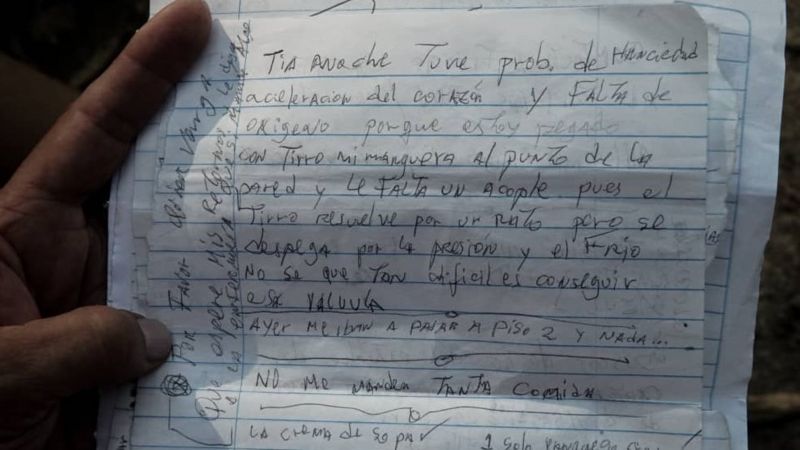 TIA Anoche Tuve prob. de Hanciedad
aceleracion del corazón y FALTA de
oxigeno porque estoy pegado
con Tirro mi manguera al punto de la
pared y le FALTA un acople pues el
Tirro resuelve por un Rato pero se
despega por la presión y el Frio
No se que Tan dificil es conseguir
esa VALVULA
Ayer me iban a pasar a piso 2 y nada...
No me manden TANTA comida
La crema de sopa ✓
1 solo
Por Favor
Que espere mis Retornos